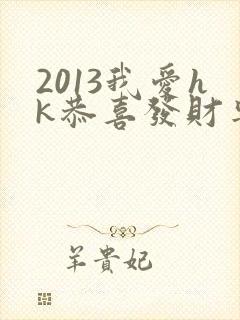 2013我愛h
k恭喜發財
羊貴妃